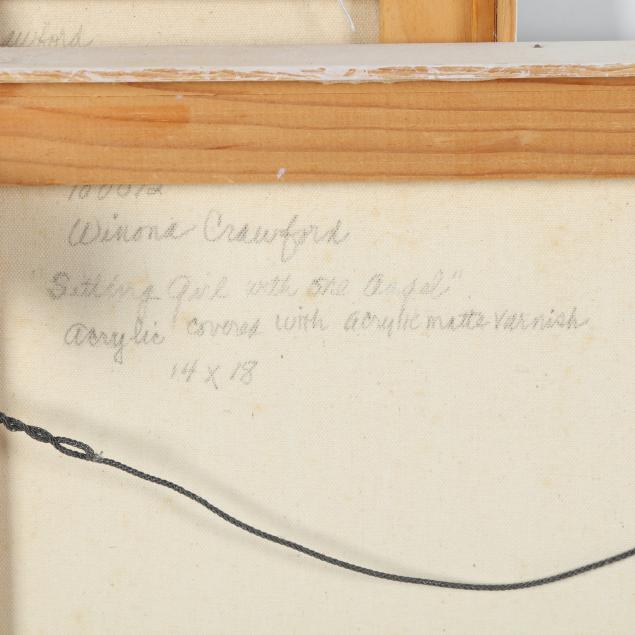 awford
Winona Crawford
Sitting Girl with One Angel"
Acrylic covered with Acrylic matte varnish
14 x 18